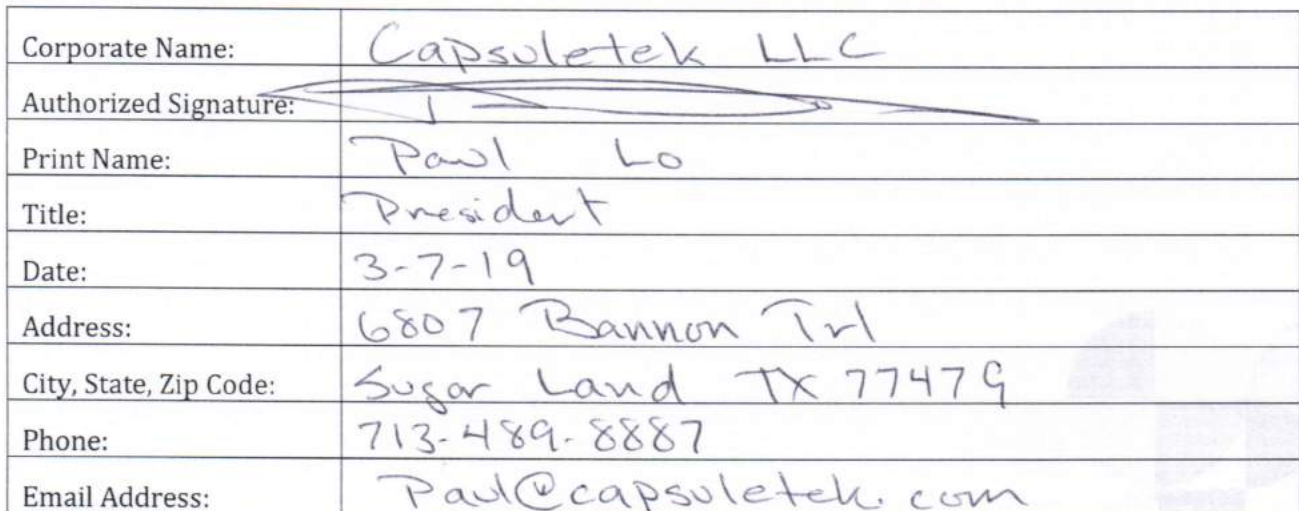 Corporate Name: Capsuletek LLC
Authorized Signature:
Print Name: Paul Lo
Title: President
Date: 3-7-19
Address: 6807 Bannon Trl
City, State, Zip Code: Sugar Land TX 77479
Phone: 713-489-8887
Email Address: Paul@capsuletek.com